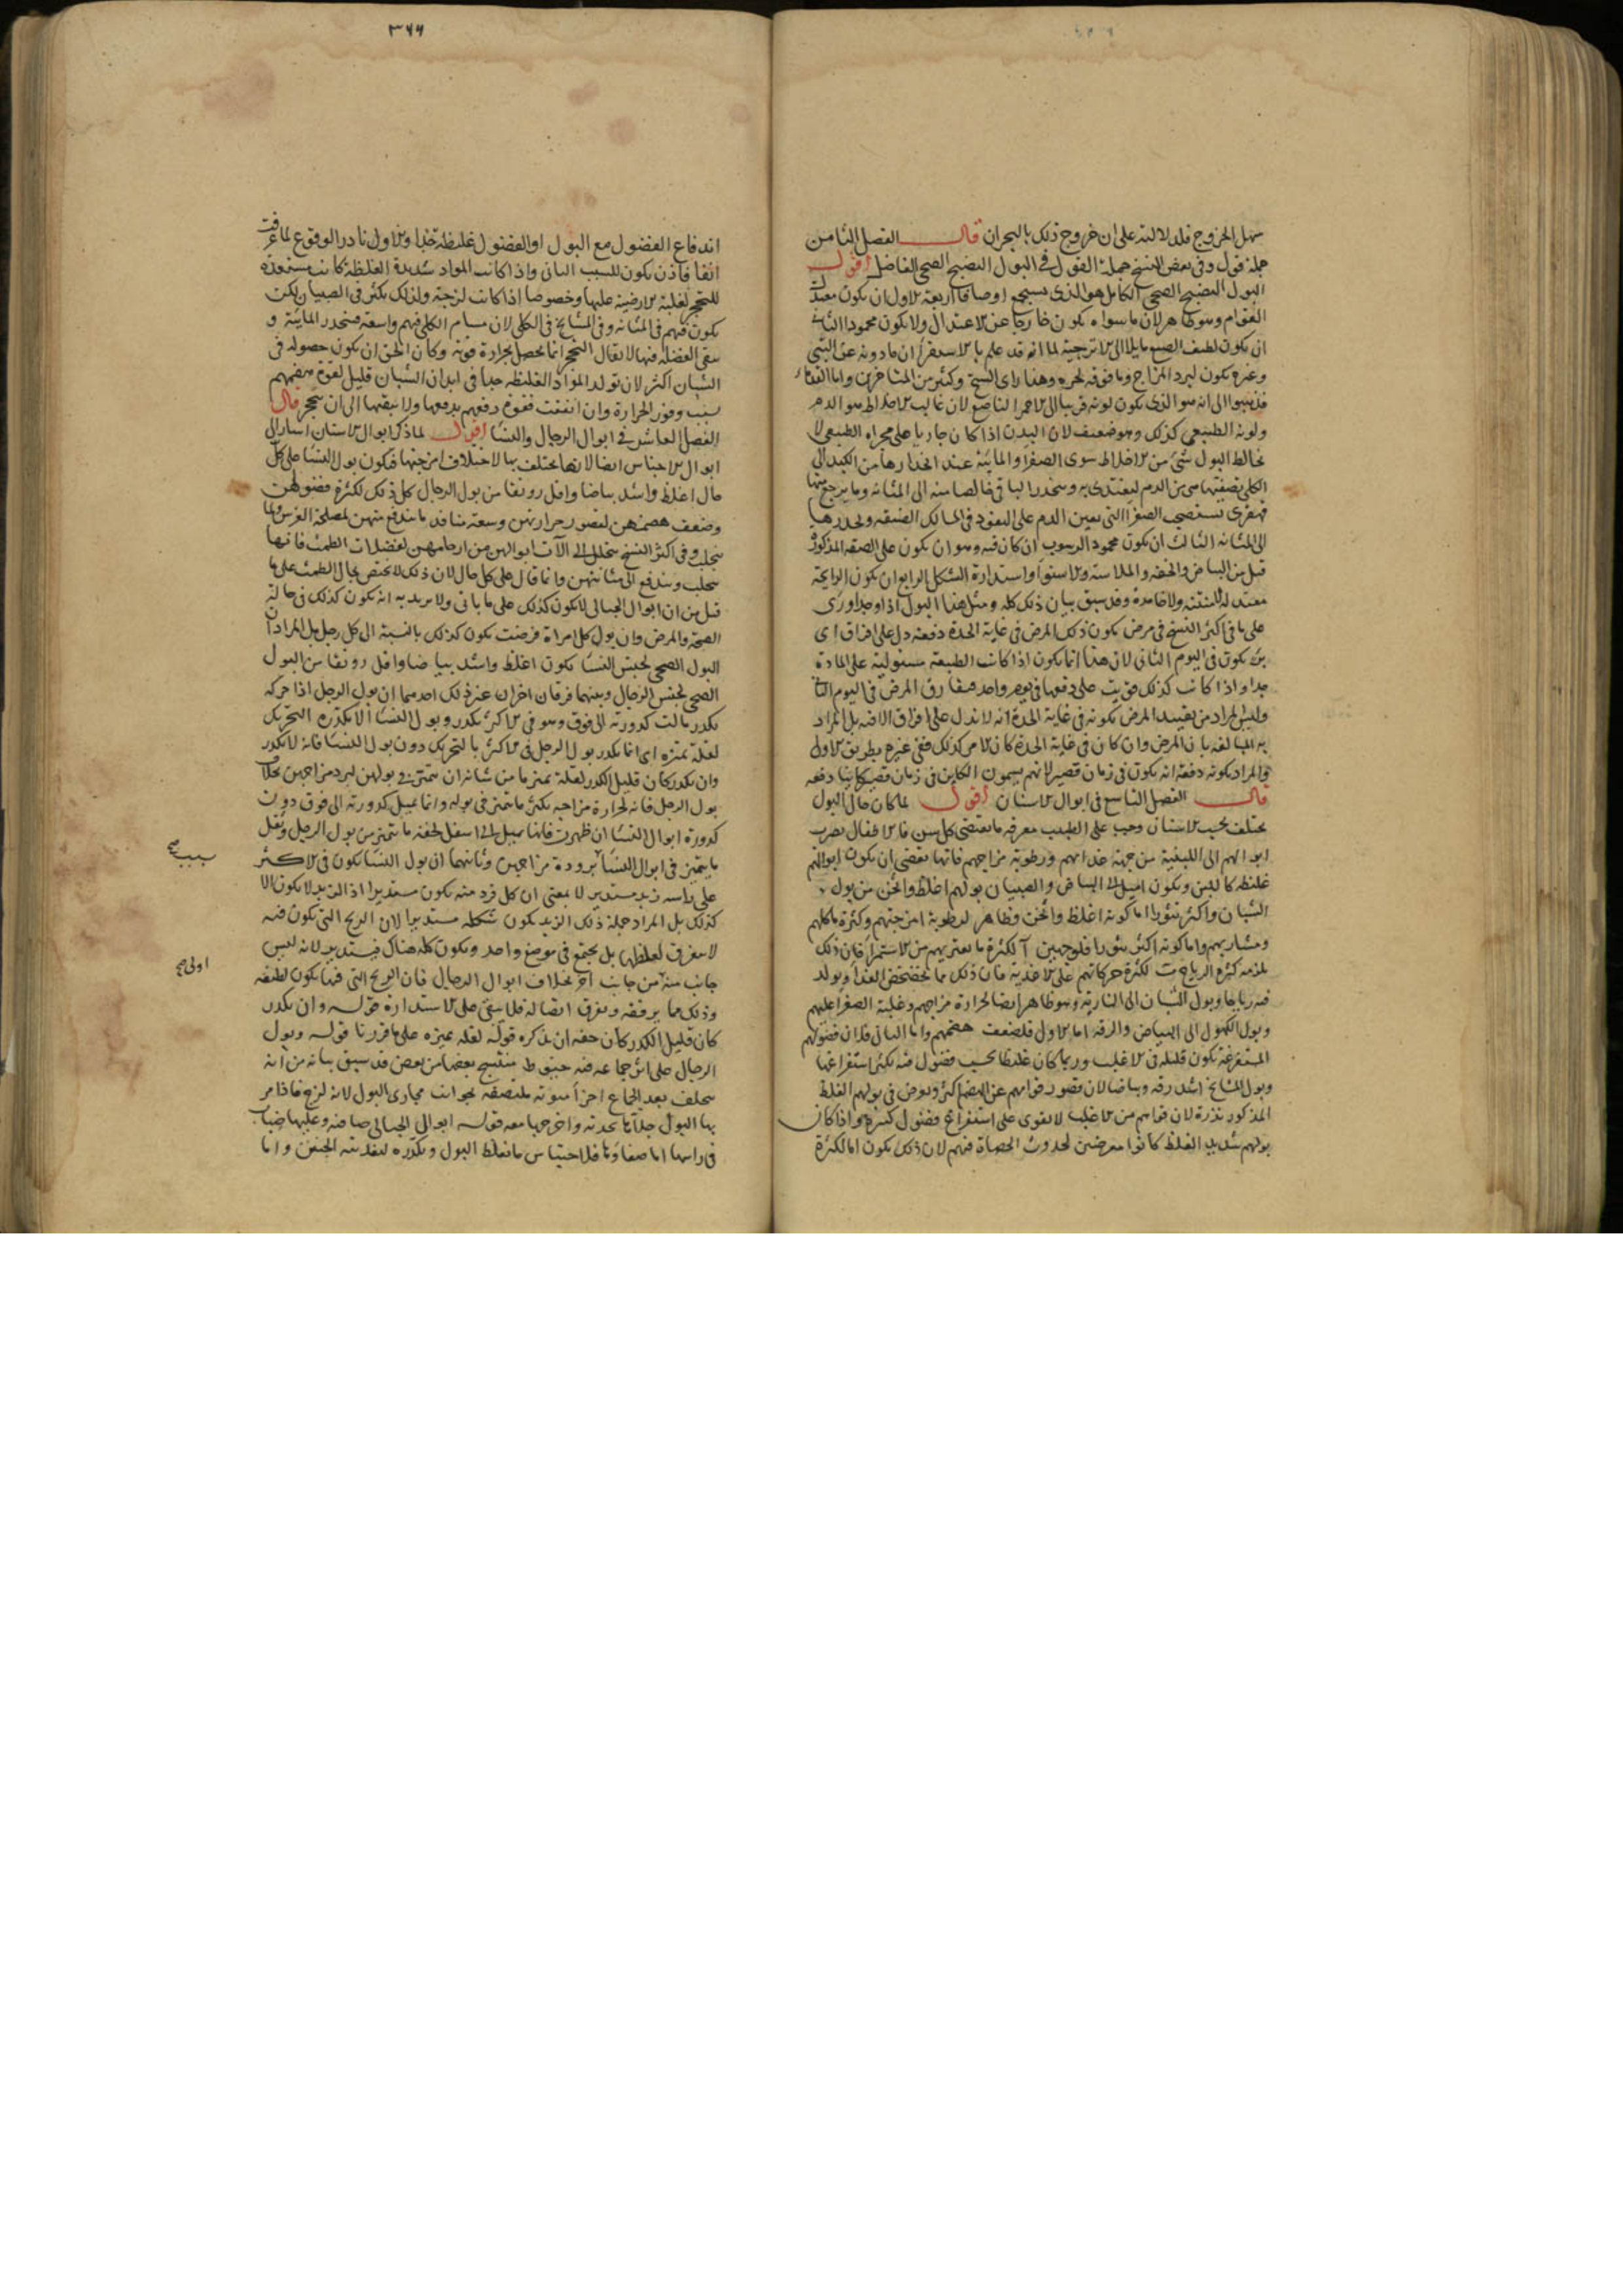 سهل الخروج فلدلالته على ان خروج ذلك بالبحران قال الفصل الثامن
جملة قول وفى بعض النسخ جملة القول فى البول النضيج الصحى الفاضل اقول
البول النضيج الصحى الكامل هو الذى يستجمع اوصافا اربعة الاول ان يكون معتدل
القوام وهو ظاهر لان ما سواه يكون خارجا عن الاعتدال ولا يكون محمودا الثانى
ان يكون لطيف الصبغ مايلا الى الاترجية لما انه قد علم بالاستقراء ان ما دونه عن التبنى
وغيره يكون لبرد المزاج وما فوقه لحره وهذا راى الشيخ وكثير من المتاخرين واما القدماء
فذهبوا الى انه هو الذى يكون لونه قريبا الى الاحمر الناصع لان غالب الاخلاط هو الدم
ولونه الطبيعى كذلك وهو ضعيف لان البدن اذا كان جاريا على مجراه الطبيعى لا
يخالط البول شئ من الاخلاط سوى الصفرا والمائية عند انحدارها من الكبد الى
الكلى يصفيها من الدم ليغتذى به وينحدر الباقى خالصا منه الى المثانة وما يرجع منها
قهقرى يستصحب الصفرا التى تعين الدم على النفوذ فى المسالك الضيقة ويحدرها
الى المثانة الثالث ان يكون محمود الرسوب ان كان فيه وهو ان يكون على الصفة المذكورة
قبل من البياض والخفة والملاسة والاستواء واستدارة الشكل الرابع ان يكون الرايحة
معتدلة لا منتنة ولا خامدة وقد سبق بيان ذلك كله ومثل هذا البول اذا وجد او رى
على ما فى اكثر النسخ فى مرض يكون ذلك المرض فى غاية الحدة دفعة دل على افراق اى
برء يكون فى اليوم الثانى لان هذا انما يكون اذا كانت الطبيعة مستولية على المادة
جدا واذا كانت كذلك قويت على دفعها فى يوم واحد فيفارق المرض فى اليوم الثانى
وليس المراد من تقييد المرض بكونه فى غاية الحدة انه لا يدل على افراق الا فيه بل المراد
به المبالغة بان المرض وان كان فى غاية الحدة كان الامر كذلك ففى غيره بطريق الاولى
والمراد بكونه دفعة انه يكون فى زمان قصير لانهم يسمون الكاين فى زمان قصير كاينا دفعة
قال الفصل التاسع فى ابوال الاسنان اقول لما كان حال البول
يختلف بحسب الاسنان وجب على الطبيب معرفة ما يقتضى كل سن فالاطفال يضرب
ابوالهم الى اللبنية من جهة غذائهم ورطوبة مزاجهم فانها تقتضى ان يكون ابوالهم
غليظة كاللبن ويكون اميل الى البياض والصبيان بولهم اغلظ واثخن من بول
الشبان واكثر تثورا اما كونه اغلظ واثخن فظاهر لرطوبة امزجتهم وكثرة ماكلهم
ومشاربهم واما كونه اكثر تثورا فلوجهين آ لكثرة ما يعتريهم من الاستمراء فان ذلك
يلزمه كثرة الرياح ت لكثرة حركاتهم على الاغذية فان ذلك مما يخضخض الغذا ويولد
فيه رياحا وبول الشبان الى النارية وهو ظاهر ايضا لحرارة مزاجهم وغلبة الصفرا عليهم
وبول الكهول الى البياض والرقة اما الاول فلضعف هضمهم واما الثانى فلان فضولهم
المستفرغة يكون قليلة فى الاغلب وربما كان غليظا بحسب فضول فيه يكثر استفراغها
وبول المشايخ اشد رقة وبياضا لان قصور قواهم عن الهضم اكثر ويعرض فى بولهم الغلظ
المذكور ندرة لان قواهم من الاغلب لا تقوى على استفراغ فضول كثيرة واذا كان
بولهم شديد الغلظ كانوا معرضين لحدوث الحصاة فيهم لان ذلك يكون اما لكثرة
٣٦٦
اندفاع الفضول مع البول او الفضول غليظة جدا والاول نادر الوقوع لما عرفت
انفا فاذن يكون للسبب الثانى واذا كانت المواد شديدة الغلظة كانت مستعدة
للتحجر لغلبة الارضية عليها وخصوصا اذا كانت لزجة ولذلك يكثر فى الصبيان لكن
يكون فيهم فى المثانة وفى المشايخ فى الكلى لان مسام الكلى فيهم واسعة فينحدر المائية و
يبقى الفضلة فيها لا يقال التحجر انما يحصل بحرارة قوية وكان الحق ان يكون حصوله فى
الشبان اكثر لان تولد المواد الغليظة جدا فى ابدان الشبان قليل لقوة هضمهم
بسبب وفور الحرارة وان اتفقت فقوة دفعهم يدفعها ولا يبقيها الى ان يتحجر قال
الفصل العاشر فى ابوال الرجال والنسا اقول لما ذكر ابوال الاسنان اشار الى
ابوال الاجناس ايضا لانها يختلف بها لاختلاف امزجتها فيكون بول النسا على كل
حال اغلظ واشد بياضا واقل رونقا من بول الرجال كل ذلك لكثرة فضولهن
وضعف هضمهن لقصور حرارتهن وسعة منافذ ما يندفع منهن لمصلحة الغرس ولما
يتحلب وفى اكثر النسخ يتحلل الى الآت ابوالهن من ارحامهن لفضلات الطمث فانها
يتحلب ويندفع الى مثانتهن وانما قال على كل حال لان ذلك لا يختص بحال الطمث على ما
قيل من ان ابوال الحبالى لا يكون كذلك على ما ياتى ولا يريد به انه يكون كذلك فى حالة
الصحة والمرض وان بول كل امراة فرضت يكون كذلك بالنسبة الى كل رجل بل المراد ان
البول الصحى لجنس النسا يكون اغلظ واشد بياضا واقل رونقا من البول
الصحى لجنس الرجال وبينهما فرقان اخران غير ذلك احدهما ان بول الرجل اذا حركه
يكدر مالت كدورته الى فوق وهو فى الاكثر يكدر وبول النسا لا يكدره التحريك
لقلة تميزه اى انما يكدر بول الرجل فى الاكثر بالتحريك دون بول النسا فانه لا يكدر
وان يكدر كان قليل الكدر لقلة تميز ما من شانه ان يتميز فى بولهن لبرد مزاجهن بخلاف
بول الرجل فانه لحرارة مزاجه يكثر ما يتميز فى بوله وانما تميل كدورته الى فوق دون
كدورة ابوال النسا ان ظهرت فانها تميل الى اسفل لخفة ما يتميز من بول الرجل وثقل
ما يتميز فى ابوال النسا برودة مزاجهن وثانيهما ان بول النسا يكون فى الاكثر
على راسه زبد مستدير لا بمعنى ان كل فرد منه يكون مستديرا اذ الزبد لا يكون الا
كذلك بل المراد جملة ذلك الزبد يكون شكله مستديرا لان الريح التى تكون فيه
لا يتفرق لغلظها بل يجتمع فى موضع واحد ويكون كله هناك فيستدير لانه ليس
جانب منه من جانب اخر بخلاف ابوال الرجال فان الريح التى فيها يكون لطيفة
وذلك مما يرققه ويفرق ايضا له فلا يبقى على الاستدارة قوله وان يكدر
كان قليل الكدر كان حقه ان يذكره قوله لقلة تميزه على ما قررنا قوله وبول
الرجال على اثر جماعه فيه خيوط منتسج بعضها من بعض قد سبق بيانه من انه
يتخلف بعد الجماع اجزا منوية ملتصقة بجوانب مجارى البول لانه لزج فاذا مر
بها البول جلاها بحدته واخرجها معه قوله ابوال الحبالى صافية وعليها ضباب
فى راسها اما صفاوها فلاحتباس ما يغلظ البول ويكدره لتغذية الجنين واما
بسبب صح
اولى صح